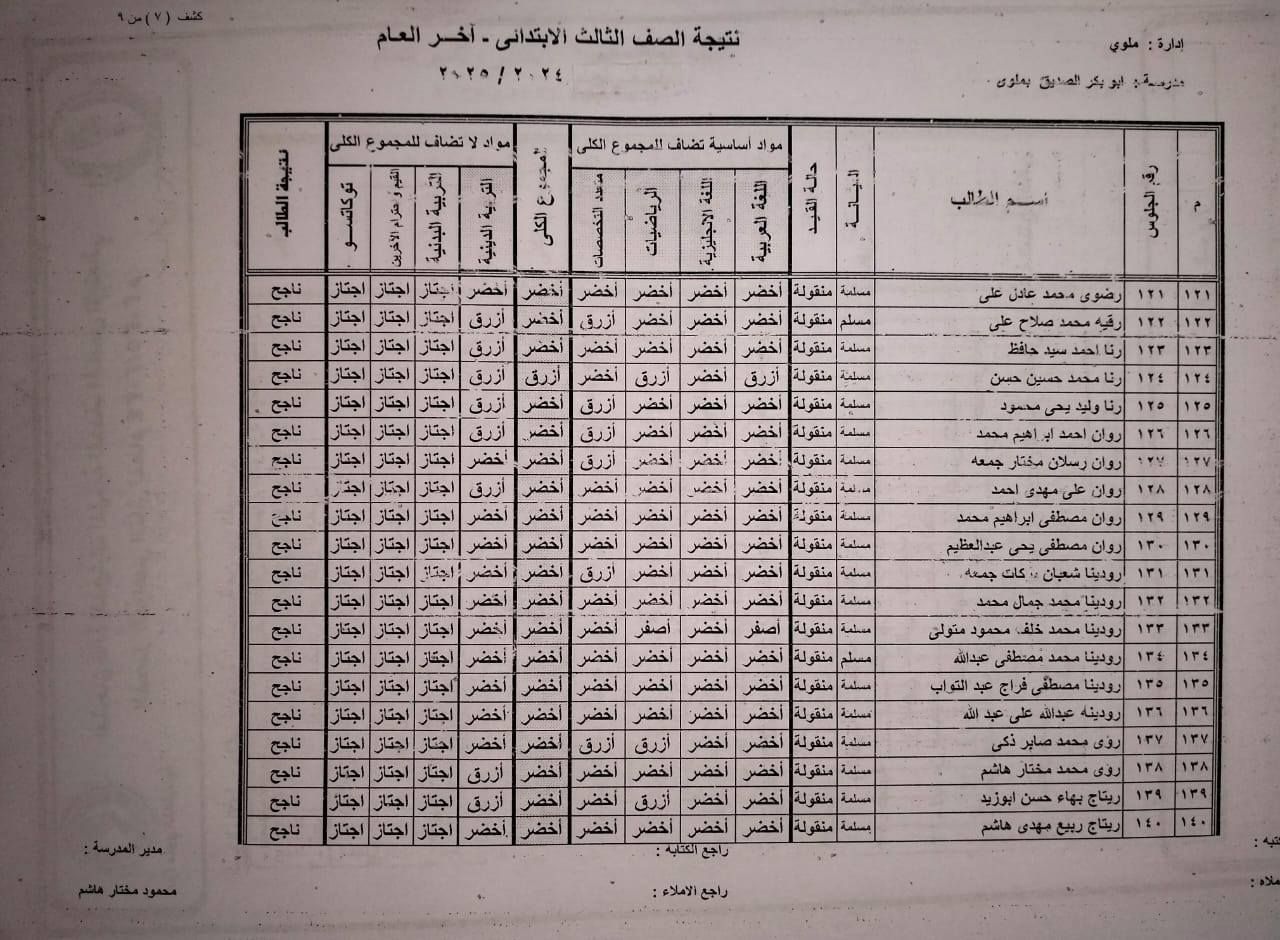 كشف (٧) من ٩
إدارة : ملوي
نتيجة الصف الثالث الابتدائى - آخـر العـام
مدرسة : ابو بكر الصديق بملوى
٢٠٢٤ / ٢٠٢٥
م | رقم الجلوس | أسـم الطالب | الديـانـة | حالة القيد | مواد أساسية تضاف للمجموع الكلى | المجموع الكلى | مواد لا تضاف للمجموع الكلى | نتيجة الطالب
اللغة العربية | اللغة الانجليزية | الرياضيات | متعدد التخصصات | التربية الدينية | التربية البدنية | القيم و احترام الآخرين | توكاتسو
١٢١ ١٢١ رضوى محمد عادل على مسلمة منقولة أخضر أخضر أخضر أخضر أخضر أخضر اجتاز اجتاز اجتاز ناجح
١٢٢ ١٢٢ رقيه محمد صلاح على مسلم منقولة أخضر أخضر أخضر أزرق أخضر أزرق اجتاز اجتاز اجتاز ناجح
١٢٣ ١٢٣ رنا احمد سيد حافظ مسلمة منقولة أخضر أخضر أخضر أخضر أخضر أزرق اجتاز اجتاز اجتاز ناجح
١٢٤ ١٢٤ رنا محمد حسين حسن مسلمة منقولة أزرق أخضر أزرق أخضر أزرق أزرق اجتاز اجتاز اجتاز ناجح
١٢٥ ١٢٥ رنا وليد يحى محمود مسلمة منقولة أخضر أخضر أخضر أزرق أخضر أزرق اجتاز اجتاز اجتاز ناجح
١٢٦ ١٢٦ روان احمد ابراهيم محمد مسلمة منقولة أخضر أخضر أخضر أزرق أخضر أزرق اجتاز اجتاز اجتاز ناجح
١٢٧ ١٢٧ روان رسلان مختار جمعه مسلمة منقولة أخضر أخضر أخضر أزرق أخضر أخضر اجتاز اجتاز اجتاز ناجح
١٢٨ ١٢٨ روان على مهدى احمد مسلمة منقولة أخضر أخضر أخضر أخضر أخضر أزرق اجتاز اجتاز اجتاز ناجح
١٢٩ ١٢٩ روان مصطفى ابراهيم محمد مسلمة منقولة أخضر أخضر أخضر أخضر أخضر أخضر اجتاز اجتاز اجتاز ناجح
١٣٠ ١٣٠ روان مصطفى يحى عبدالعظيم مسلمة منقولة أخضر أخضر أخضر أخضر أخضر أخضر اجتاز اجتاز اجتاز ناجح
١٣١ ١٣١ رودينا شعبان بركات جمعه مسلمة منقولة أخضر أخضر أخضر أزرق أخضر أخضر اجتاز اجتاز اجتاز ناجح
١٣٢ ١٣٢ رودينا محمد جمال محمد مسلمة منقولة أخضر أخضر أخضر أخضر أخضر أخضر اجتاز اجتاز اجتاز ناجح
١٣٣ ١٣٣ رودينا محمد خلف محمود متولى مسلمة منقولة أصفر أخضر أصفر أخضر أخضر أخضر اجتاز اجتاز اجتاز ناجح
١٣٤ ١٣٤ رودينا محمد مصطفى عبدالله مسلم منقولة أخضر أخضر أخضر أخضر أخضر أخضر اجتاز اجتاز اجتاز ناجح
١٣٥ ١٣٥ رودينا مصطفى فراج عبد التواب مسلمة منقولة أخضر أخضر أخضر أخضر أخضر أخضر اجتاز اجتاز اجتاز ناجح
١٣٦ ١٣٦ رودينه عبدالله على عبد الله مسلمة منقولة أخضر أخضر أخضر أخضر أخضر أخضر اجتاز اجتاز اجتاز ناجح
١٣٧ ١٣٧ رؤى محمد صابر ذكى مسلمة منقولة أخضر أخضر أزرق أزرق أخضر أخضر اجتاز اجتاز اجتاز ناجح
١٣٨ ١٣٨ رؤى محمد مختار هاشم مسلمة منقولة أخضر أخضر أخضر أخضر أخضر أزرق اجتاز اجتاز اجتاز ناجح
١٣٩ ١٣٩ ريتاج بهاء حسن ابوزيد مسلمة منقولة أخضر أخضر أزرق أخضر أخضر أزرق اجتاز اجتاز اجتاز ناجح
١٤٠ ١٤٠ ريتاج ربيع مهدى هاشم مسلمة منقولة أخضر أخضر أخضر أخضر أخضر أخضر اجتاز اجتاز اجتاز ناجح
كتبه : راجع الكتابه : مدير المدرسة :
أملاه : راجع الاملاء : محمود مختار هاشم